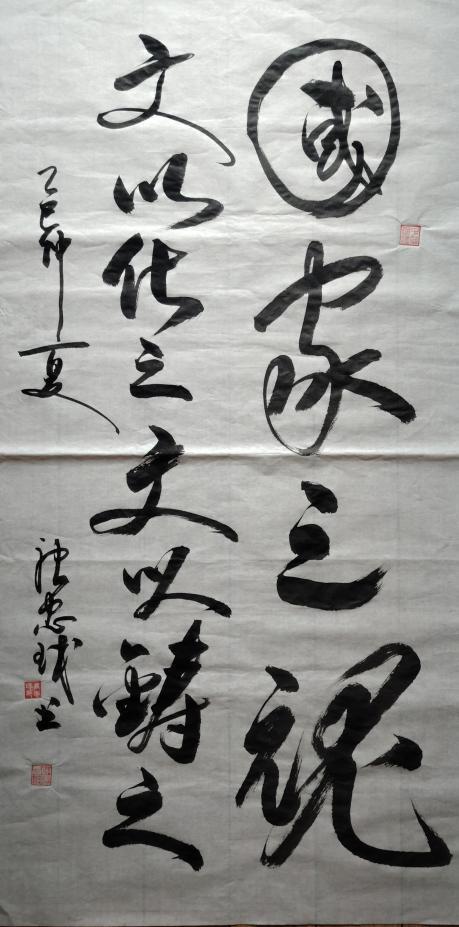 國家之魂
文以化之文以鑄之
乙巳仲夏
张忠城书